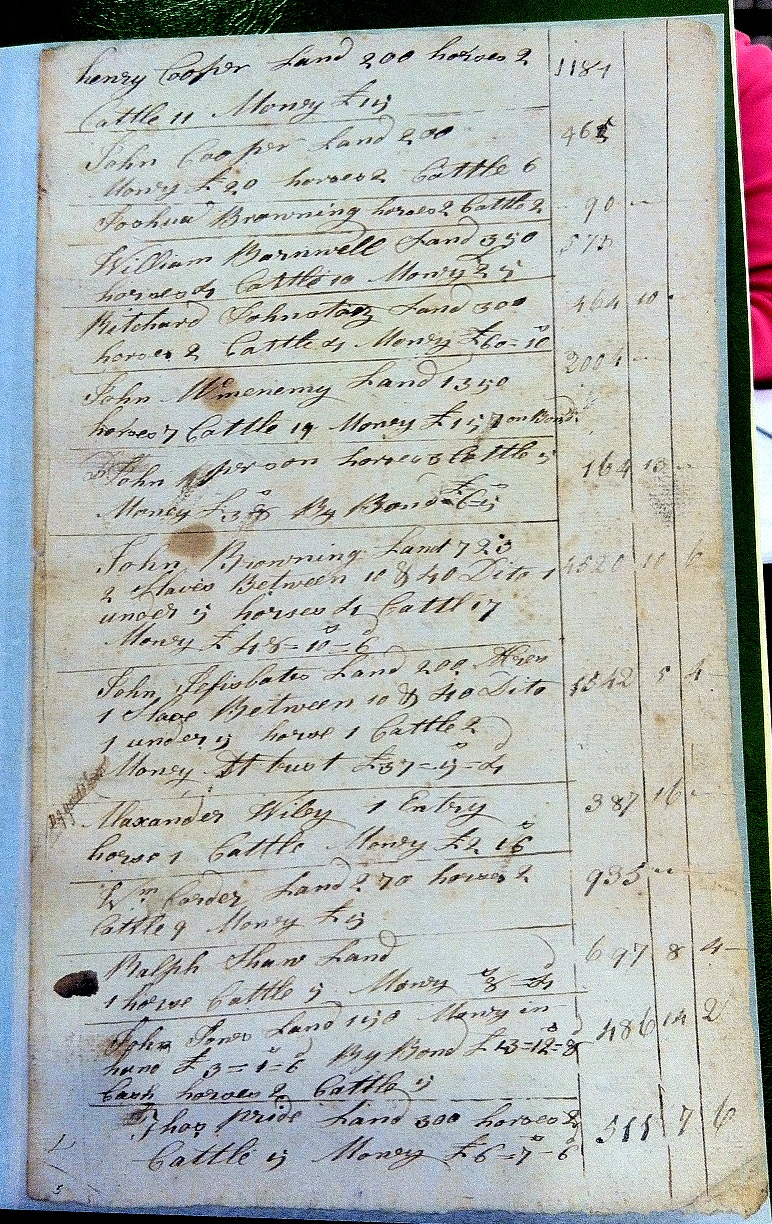 henry Cooper Land 200 horses 2 1184
Cattle 11 Money £15
John Cooper Land 200 465
Money £20 horses 2 Cattle 6
Joshua Browning horses 2 Cattle 2 90
William Barnwell Land 350 575
horses 4 Cattle 10 Money £5
Ritchard Land 300 464 10
horses 2 Cattle 4 Money £60=10
John Land 1350 2004
horses 7 Cattle 19 Money £15 on Bond
John horses 3 Cattle 5 164 13
Money £3=8 By Bond £6=5
John Browning Land 723
2 Slaves Between 10 & 40 Dito 1 4520 10 6
under 5 horses 4 Cattle 17
Money £48=10=6
John Land 200 Acres
1 Slave Between 10 & 40 Dito 1542 5 4
1 under 5 horse 1 Cattle 2
Money At £37=15=4
Alaxander Wiley 1 Entry 387 16
horse 1 Cattle Money £2 16
Wm Corder Land 270 horses 2 935
Cattle 9 Money £5
Ralph Shaw Land 697 8 4
1 horse Cattle 5 Money 8=4
John Jones Land 150 Money in 486 14 2
hand £3=1=6 By Bond £13=12=8
Cash horses 2 Cattle 5
Thos Pride Land 300 horses 2 511 7 6
Cattle 5 Money £6=7=6